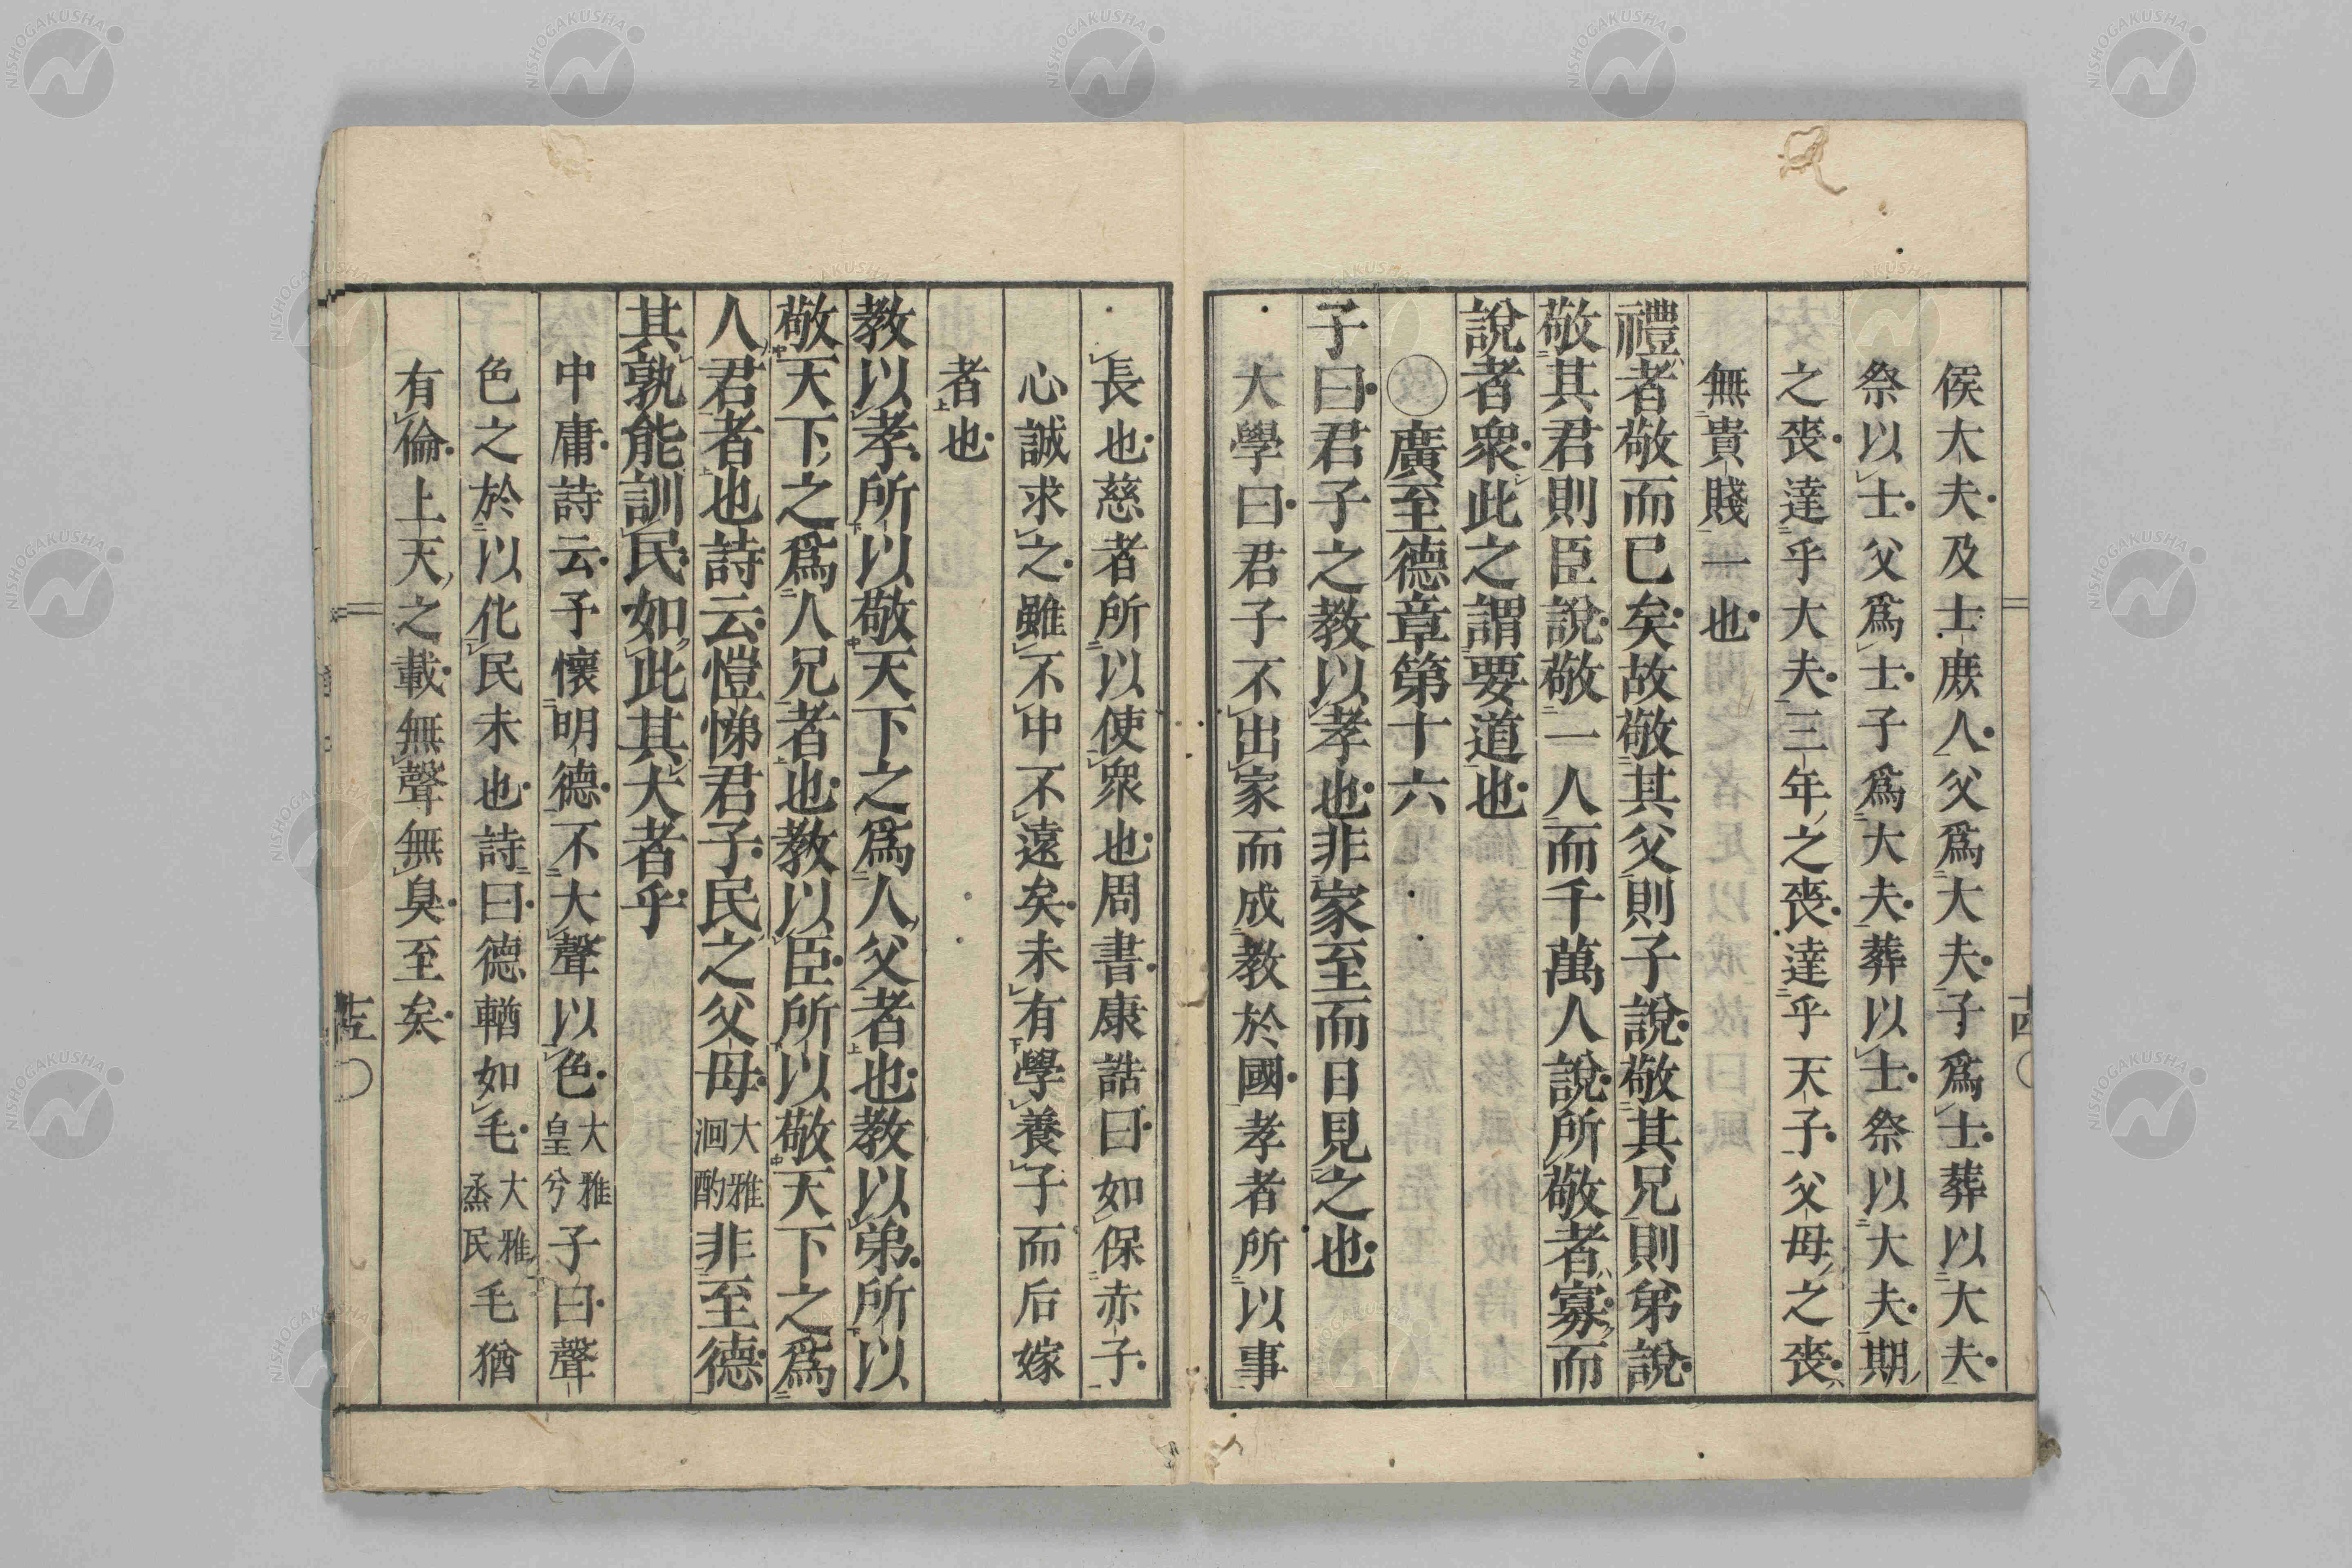 侯大夫及士庶人父爲大夫子爲士葬以大夫
祭以士父爲士子爲大夫葬以士祭以大夫期
之喪達乎大夫三年之喪達乎天子父母之喪
無貴賤一也
禮者敬而已矣故敬其父則子說敬其兄則弟說
敬其君則臣說敬一人而千萬人說所敬者寡而
說者衆此之謂要道也
廣至德章第十六
子曰君子之教以孝也非家至而日見之也
大學曰君子不出家而成教於國孝者所以事
十四
長也慈者所以使衆也周書康誥曰如保赤子
心誠求之雖不中不遠矣未有學養子而后嫁
者也
教以孝所以敬天下之爲人父者也教以弟所以
敬天下之爲人兄者也教以臣所以敬天下之爲
人君者也詩云愷悌君子民之父母大雅泂酌非至德
其孰能訓民如此其大者乎
中庸詩云予懷明德不大聲以色大雅皇兮子曰聲
色之於以化民未也詩曰德輶如毛大雅烝民毛猶
有倫上天之載無聲無臭至矣
十五
NISHOGAKUSHA